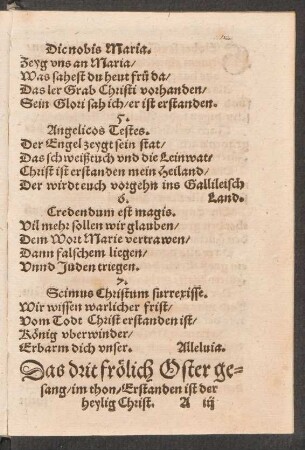 Dic nobis Maria.
Zeyg vns an Maria/
Was sahest du heut frü da/
Das ler Grab Christi vorhanden/
Sein Glori sah ich/er ist erstanden.
5.
Angelicos Testes.
Der Engel zeygt sein stat/
Das schweißtuch vnd die Leinwat/
Christ ist erstanden mein Heiland/
Der wirdt euch vorgehn ins Gallileisch
6. Land.
Credendum est magis.
Vil mehr sollen wir glauben/
Dem Wort Marie vertrawen/
Dann falschem liegen/
Vnnd Juden triegen.
7.
Scimus Christum surrexisse.
Wir wissen warlicher frist/
Vom Todt Christ erstanden ist/
König vberwinder/
Erbarm dich vnser. Alleluia.
Das drit frölich Oster ge-
sang/im thon/Erstanden ist der
heylig Christ. A iij